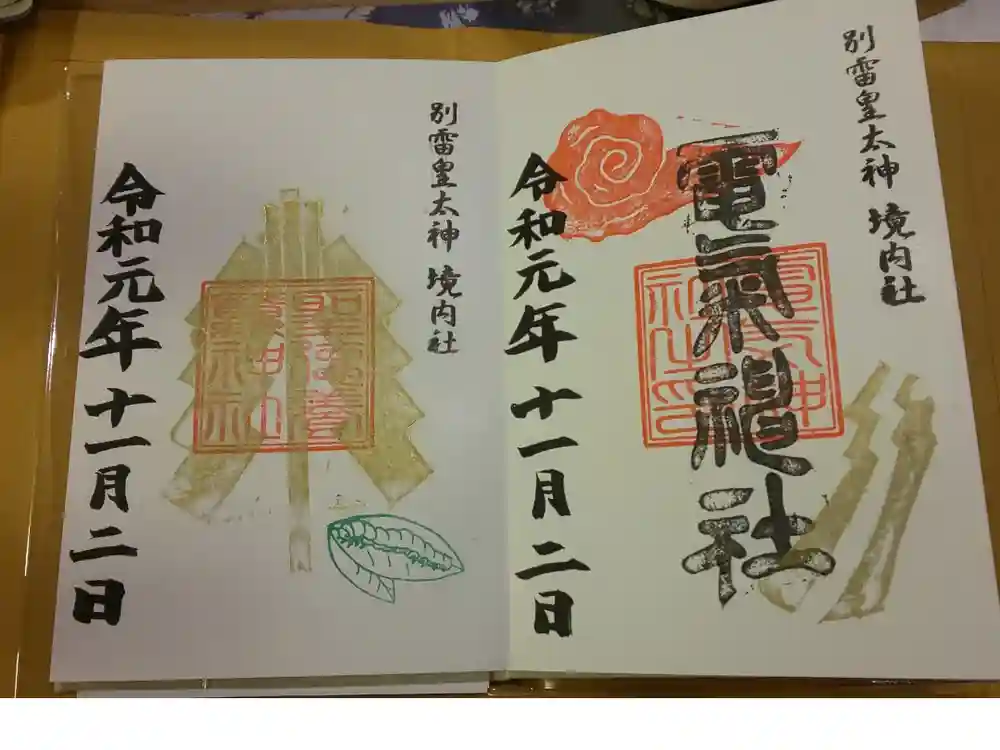 別雷皇太神 境内社
電氣神社
令和元年 十一月 二日
別雷皇太神 境内社
令和元年 十一月 二日